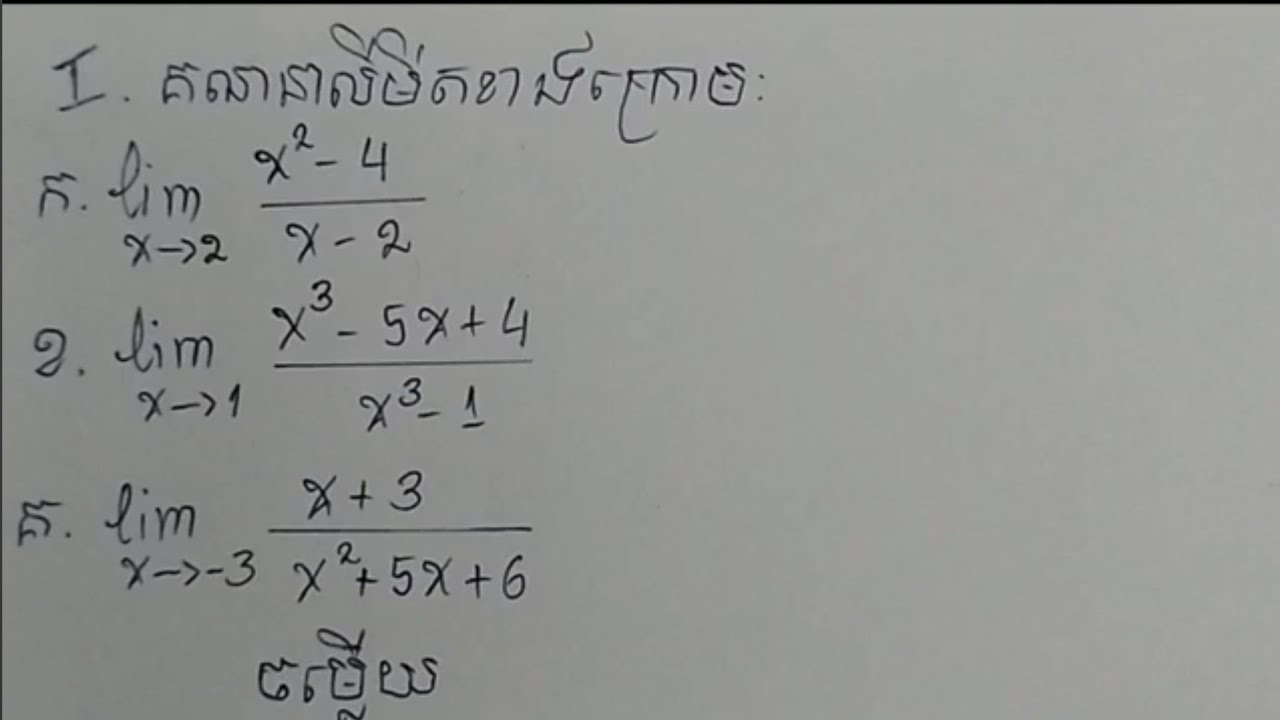 I. គណនាលីមីតខាងក្រោម:
ក. lim x→2 (x² - 4)/(x - 2)
ខ. lim x→1 (x³ - 5x + 4)/(x³ - 1)
គ. lim x→-3 (x + 3)/(x² + 5x + 6)
ចម្លើយ